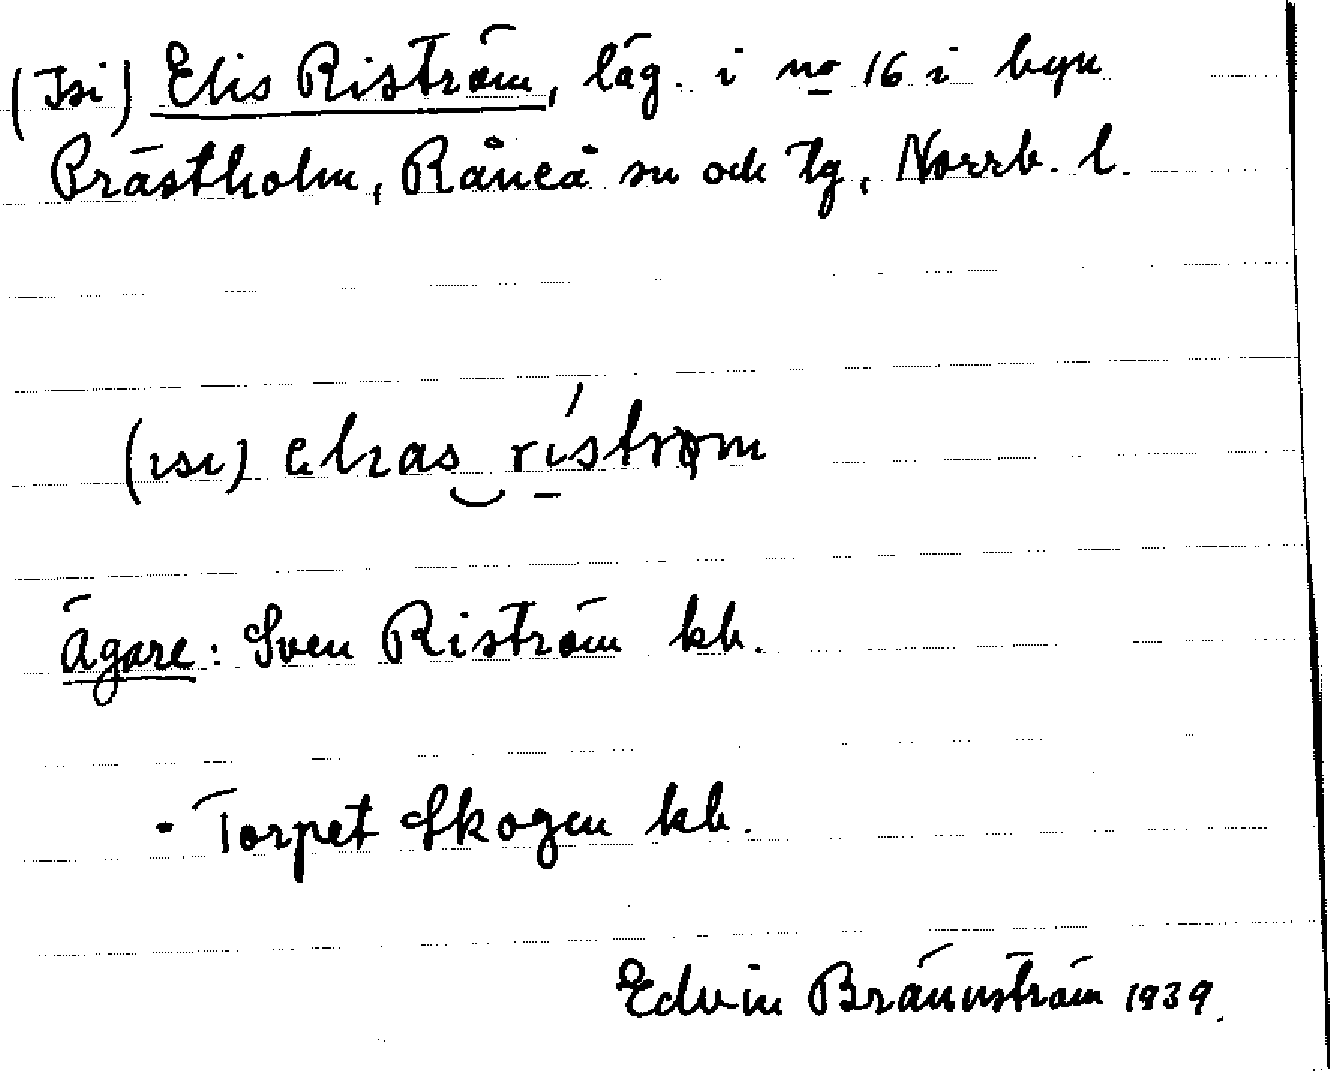 (Isi) Elis Riström, läg. i no 16 i byn
Prästholm, Råneå sn och tg, Norrb. l.
(ısı) elıas rístrøm
Ägare: Sven Riström kb.
- Torpet Skogen kb.
Edvin Brännström 1939.